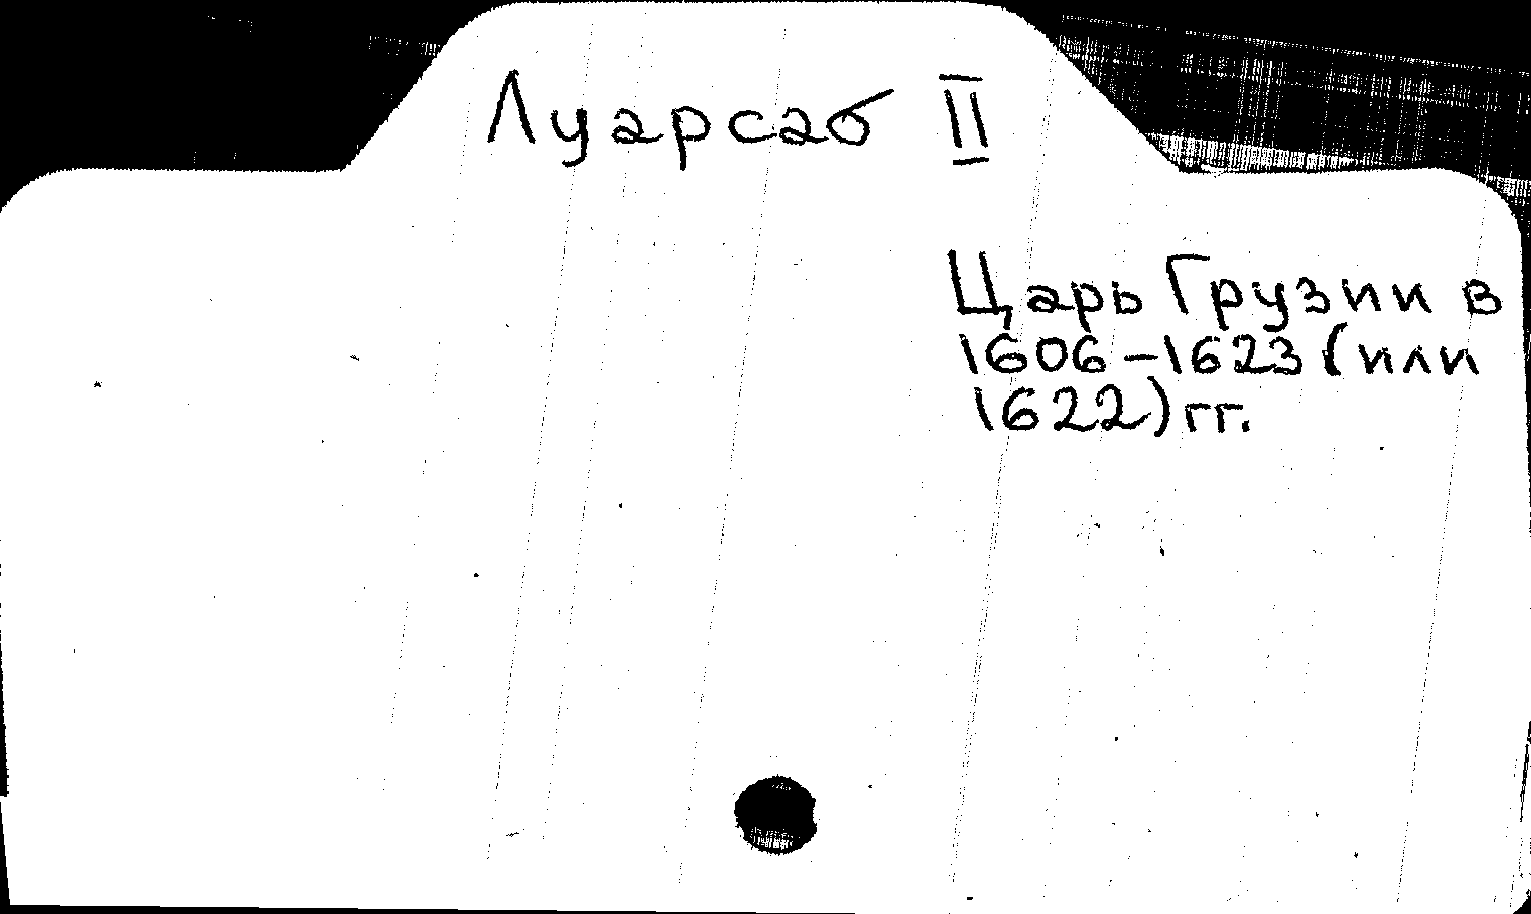 Луарсаб II
Царь Грузии в
1606-1623 (или
1622) гг.